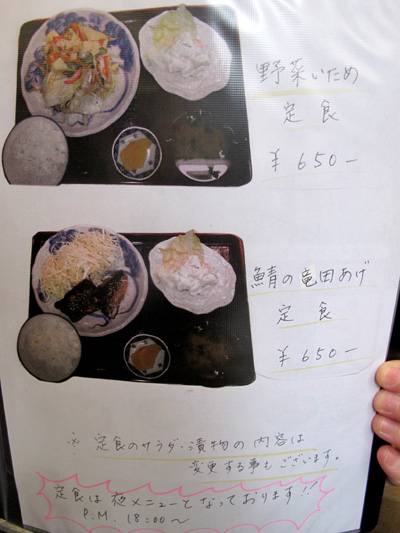 野菜いため
定食
¥650-
鯖の竜田あげ
定食
¥650-
※ 定食のサラダ・漬物の内容は
変更する事もございます。
定食は夜メニューとなっております!!
P.M. 18:00〜